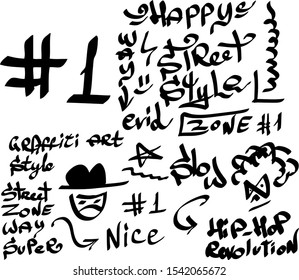 #1
HAPPY
STREET
STYLE
evid
ZONE #1
GRAFFITI ART
STYLE
STREET
ZONE
WAY
SUPER
SLOW
#1
NICE
HIP-HOP
REVOLUTION
shutterstock.com · 1542065672